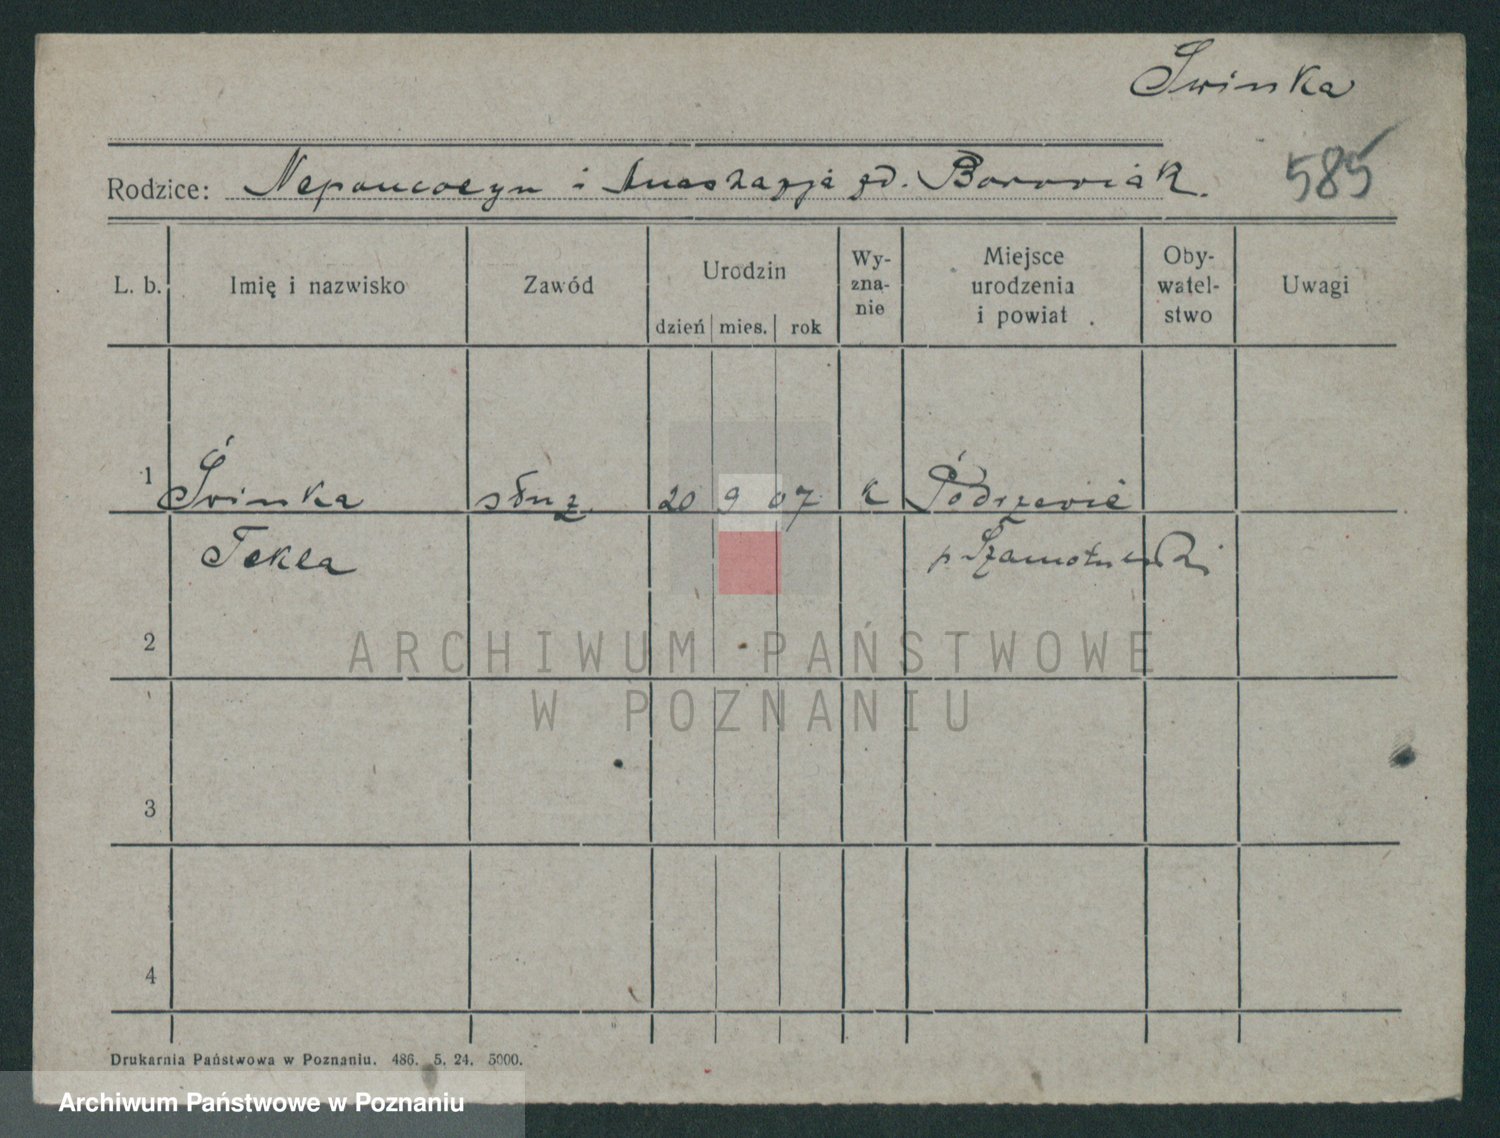 Świnka
585
Rodzice: Nepomucen i Anastazja zd. Borowiak.
L. b. Imię i nazwisko Zawód Urodzin dzień mies. rok Wy-zna-nie Miejsce urodzenia i powiat Oby-watel-stwo Uwagi
1 Świnka służ 20 9 07 k Podrzewie
Tekla p. Szamotulski
2
3
4
ARCHIWUM PAŃSTWOWE
W POZNANIU
Drukarnia Państwowa w Poznaniu. 486. 5. 24. 5000.
Archiwum Państwowe w Poznaniu